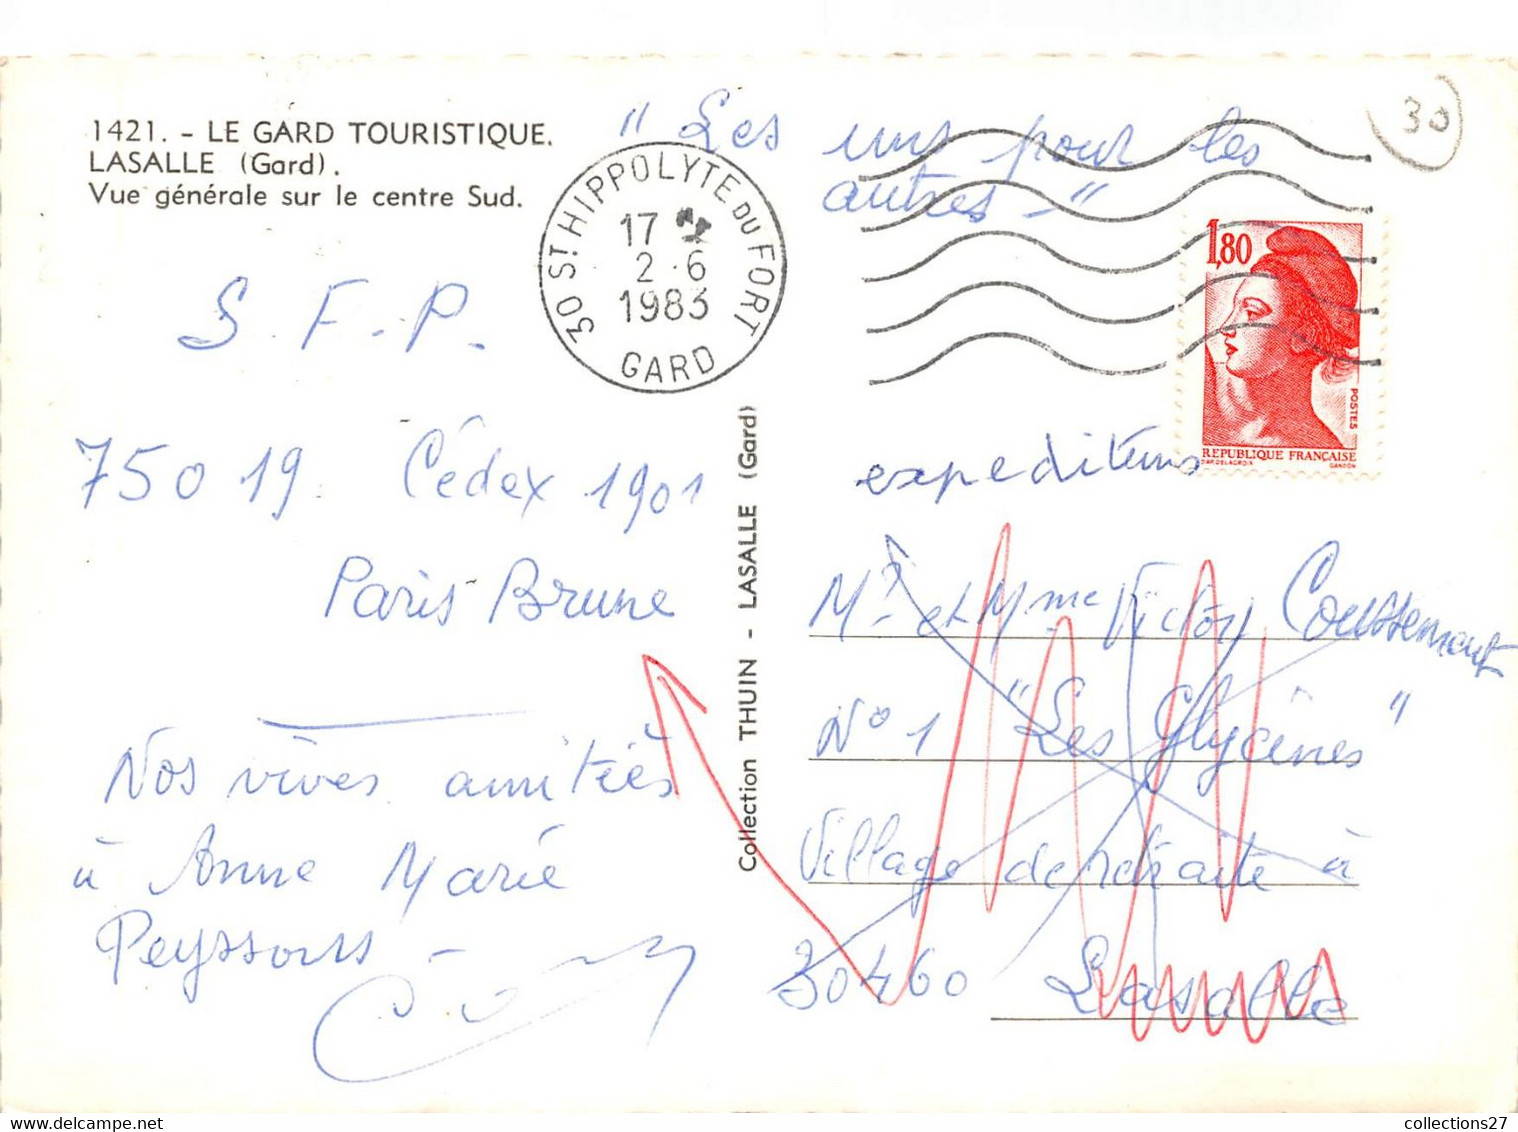 1421. - LE GARD TOURISTIQUE.
LASALLE (Gard).
Vue générale sur le centre Sud.
" Les uns pour les
autres - "
30
30 ST HIPPOLYTE DU FORT
17
2 - 6
1983
GARD
1,80
POSTES
REPUBLIQUE FRANÇAISE
D'AP. DELACROIX GANDON
S. F. P.
75019 Cédex 1901
Paris-Brune
Nos vives amitiés
à Anne Marie
Peyssons -
Collection THUIN - LASALLE (Gard)
expediteurs
Mr et Mme Victor Coussement
N° 1 "Les Glycines"
Village de retraite à
30460 Lasalle
collections27